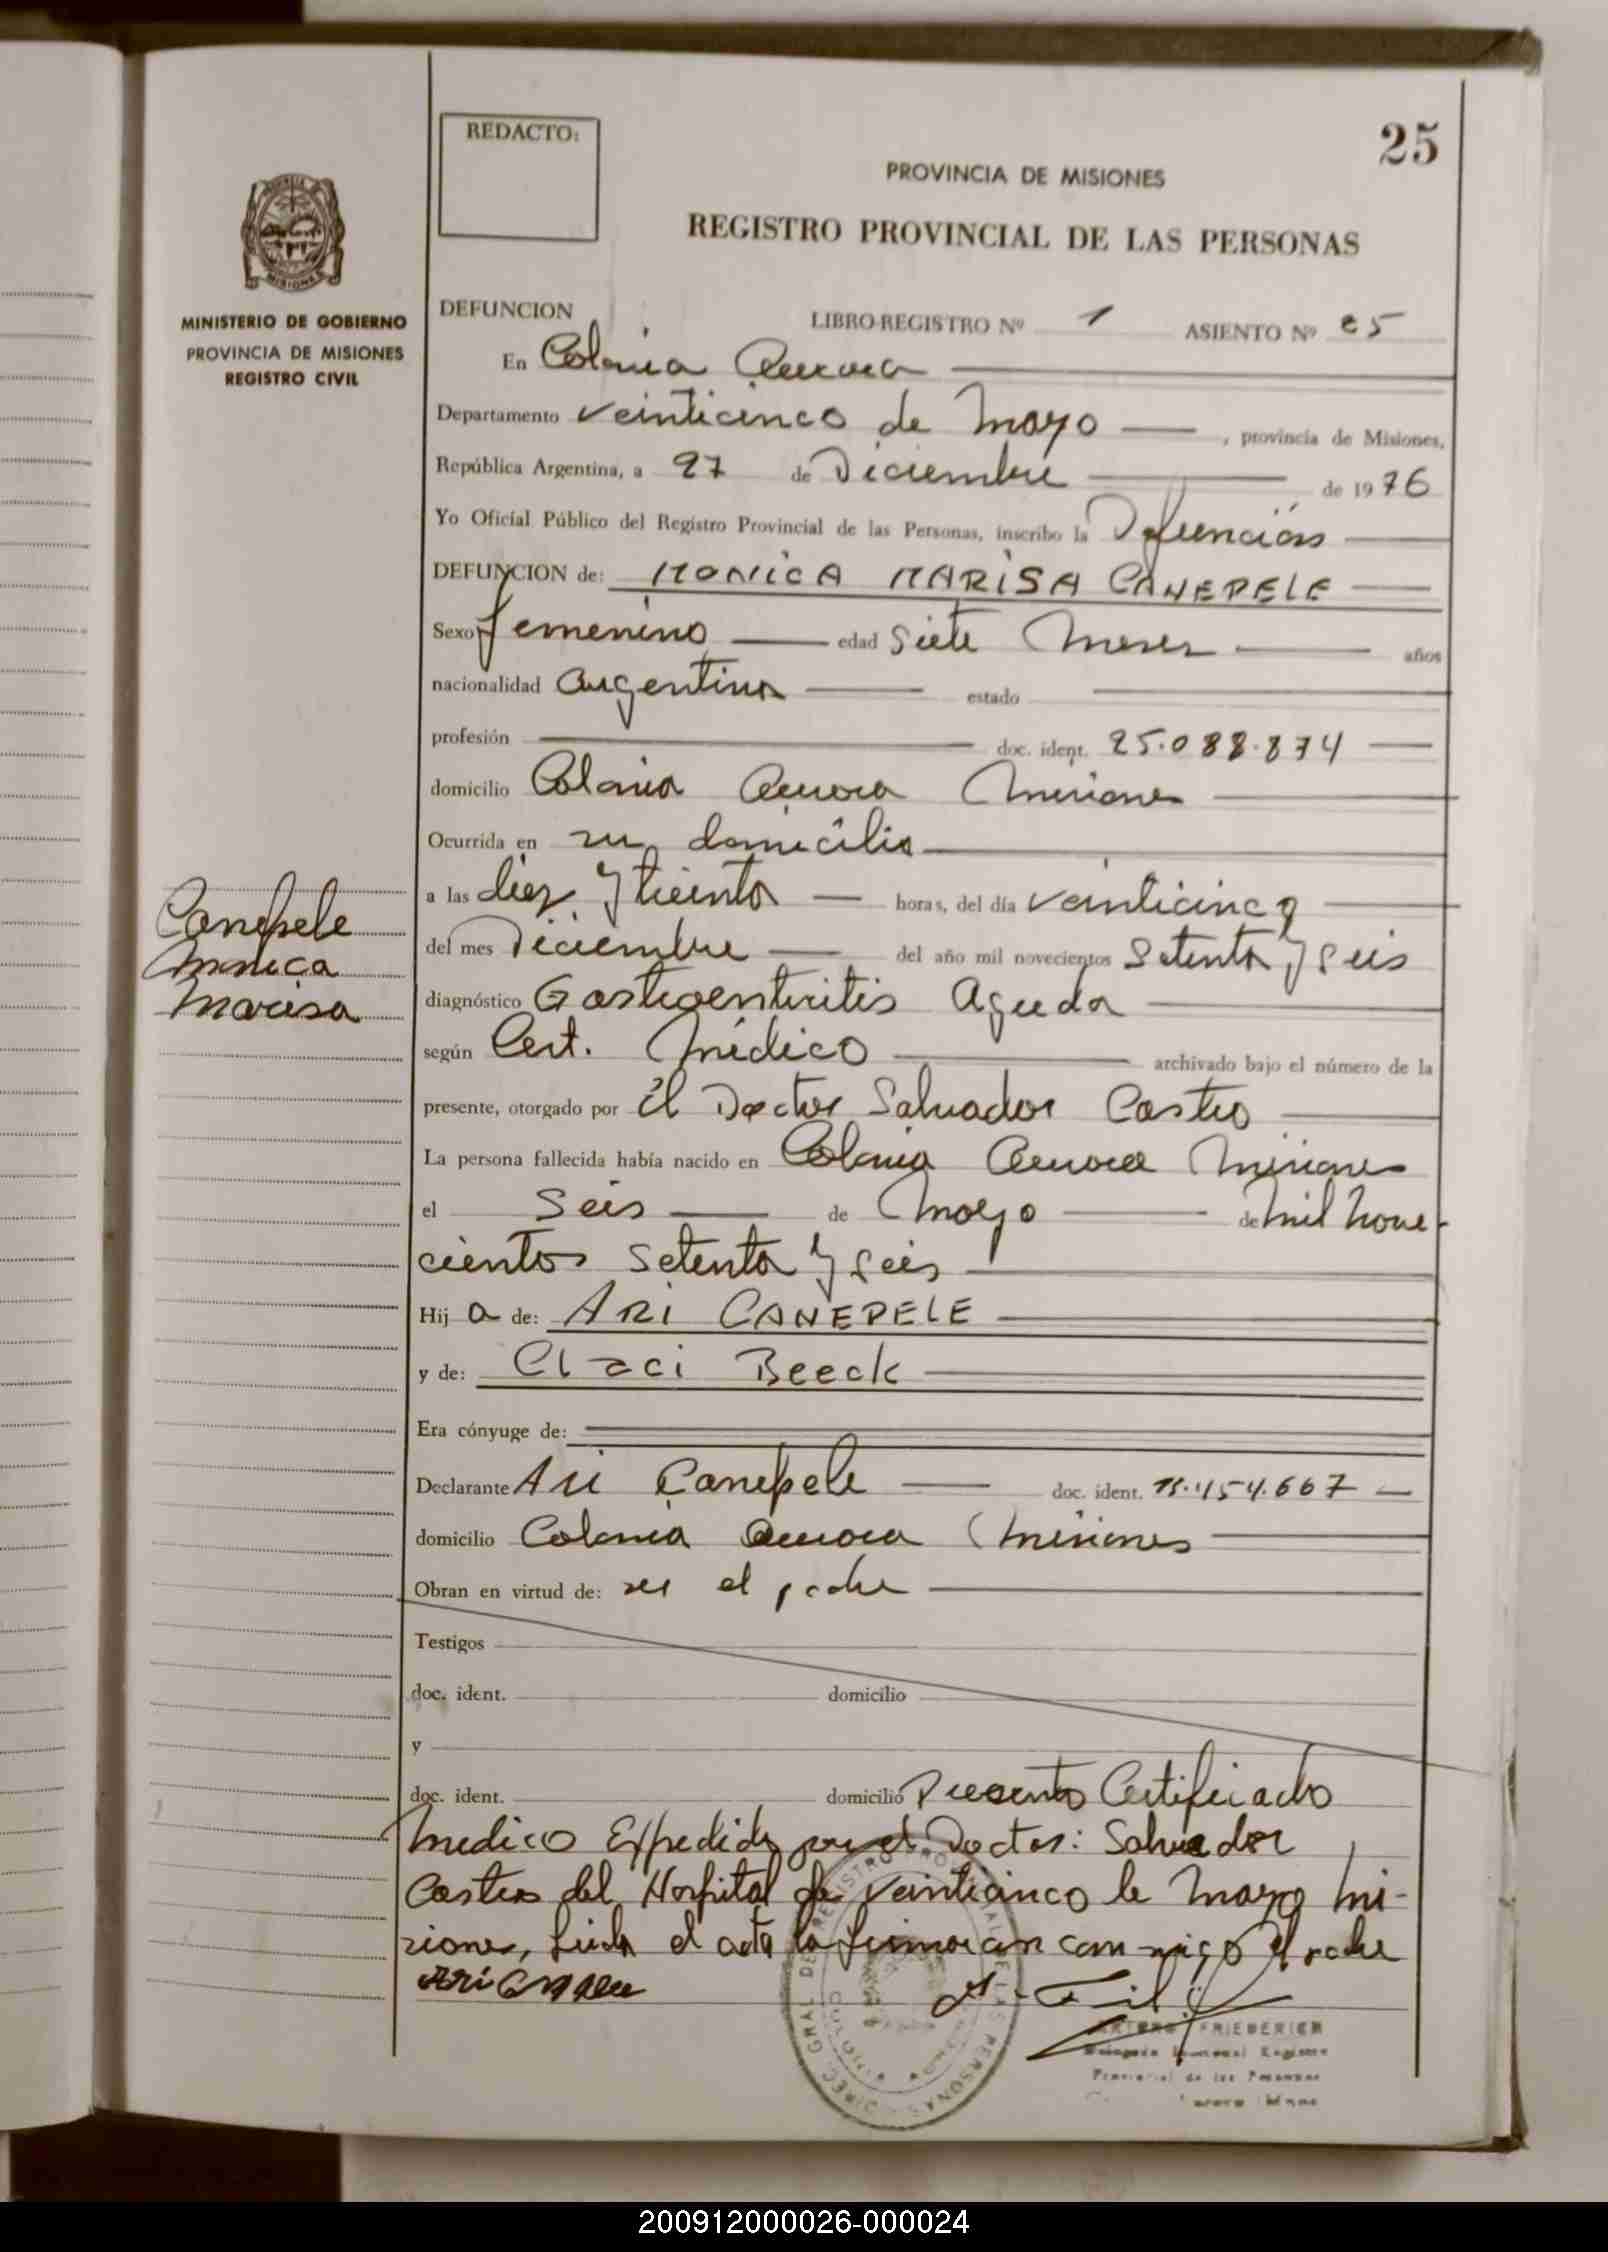 REDACTO:
25
PROVINCIA DE MISIONES
REGISTRO PROVINCIAL DE LAS PERSONAS
MINISTERIO DE GOBIERNO
PROVINCIA DE MISIONES
REGISTRO CIVIL
DEFUNCION LIBRO-REGISTRO Nº 1 ASIENTO Nº 25
En Colonia Aurora
Departamento Veinticinco de Mayo, provincia de Misiones,
República Argentina, a 27 de Diciembre de 1976
Yo Oficial Público del Registro Provincial de las Personas, inscribo la Defunción
DEFUNCION de: MONICA MARISA CANEPELE
Sexo femenino edad Siete Meses años
nacionalidad Argentina estado
profesión doc. ident. 25.088.874
domicilio Colonia Aurora Misiones
Ocurrida en su domicilio
a las diez y treinta horas, del día veinticinco
del mes Diciembre del año mil novecientos Setenta y seis
diagnóstico Gastroenteritis Aguda
según Cert. Médico archivado bajo el número de la
presente, otorgado por El Doctor Salvador Castro
La persona fallecida había nacido en Colonia Aurora Misiones
el Seis de Mayo de mil nove-
cientos setenta y seis
Hij a de: ARI CANEPELE
y de: Claci Beeck
Era cónyuge de:
Declarante Ari Canepele doc. ident. 13.454.667
domicilio Colonia Aurora Misiones
Obran en virtud de: ser el padre
Testigos
doc. ident. domicilio
y
doc. ident. domicilio Presento Certificado
Medico Expedido por el Doctor: Salvador
Castro del Hospital de Veinticinco de Mayo Mi-
siones, Leida el acta la firmaran con-migo el padre
Canepele
Monica
Marisa
DIREC. GRAL. DEL REGISTRO PROVINCIAL DE LAS PERSONAS
ARTURO FRIEDERICH
Provincial de las Personas
200912000026-000024